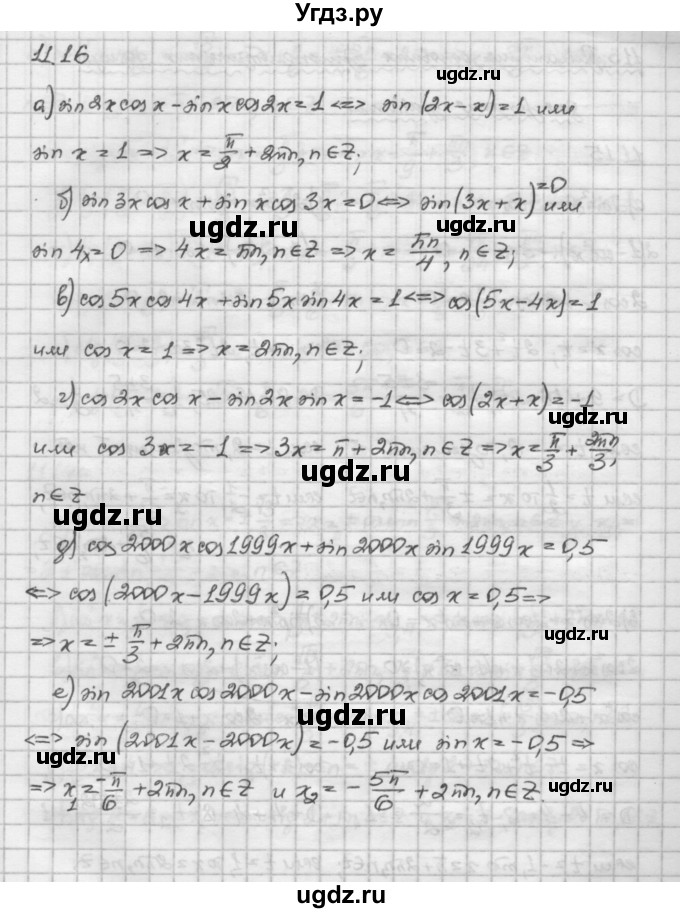 Угдз.ру
11.16
ugdz.ru
а) sin 2x cos x - sin x cos 2x = 1 <=> sin (2x - x) = 1 или
sin x = 1 => x = π/2 + 2πn, n ∈ Z;
ugdz.ru
б) sin 3x cos x + sin x cos 3x = 0 <=> sin (3x + x) = 0 или
ugdz.ru
ugdz.ru
sin 4x = 0 => 4x = πn, n ∈ Z => x = πn/4, n ∈ Z;
в) cos 5x cos 4x + sin 5x sin 4x = 1 <=> cos (5x - 4x) = 1
или cos x = 1 => x = 2πn, n ∈ Z;
г) cos 2x cos x - sin 2x sin x = -1 <=> cos (2x + x) = -1
ugdz.ru
или cos 3x = -1 => 3x = π + 2πn, n ∈ Z => x = π/3 + 2πn/3;
ugdz.ru
n ∈ Z
ugdz.ru
д) cos 2000x cos 1999x + sin 2000x sin 1999x = 0,5
<=> cos (2000x - 1999x) = 0,5 или cos x = 0,5 =>
ugdz.ru
=> x = ± π/3 + 2πn, n ∈ Z;
е) sin 2001x cos 2000x - sin 2000x cos 2001x = -0,5
ugdz.ru
<=> sin (2001x - 2000x) = -0,5 или sin x = -0,5 =>
ugdz.ru
=> x₁ = -π/6 + 2πn, n ∈ Z и x₂ = - 5π/6 + 2πn, n ∈ Z.
ugdz.ru
ugdz.ru
ugdz.ru